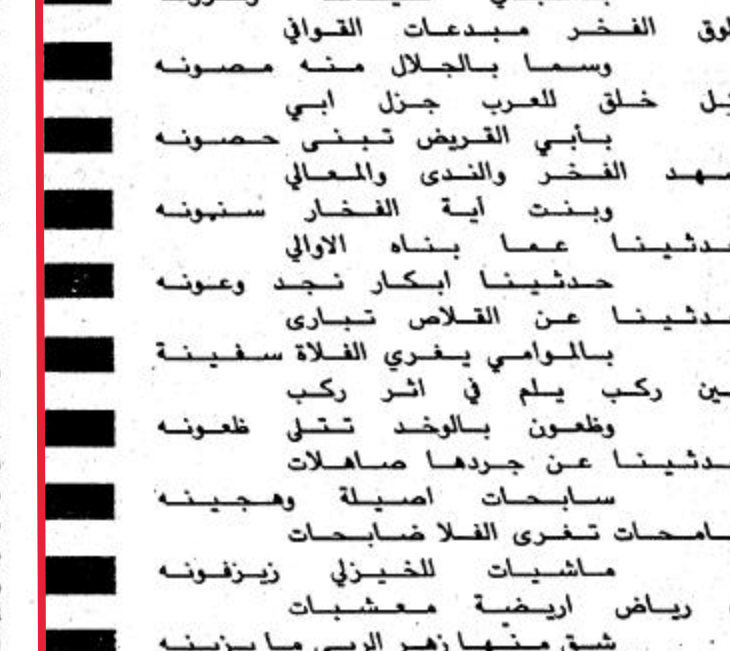 الفخر مبدعات القوافي
وسما بالجلال منه مصونه
خلق للعرب جزل ابي
بأبي القريض تبنى حصونه
الفخر والندى والمعالي
وبنت آية الفخار سنهونه
عما بناه الاوالي
حدثينا ابكار نجد وعونه
عن القلاص تبارى
بالموامي يغري الفلاة سفينة
ركب يلم في اثر ركب
وظعون بالوخد تتلى ظعونه
عن جردها صاهلات
سابحات اصيلة وهجينه
تغرى الفلا ضابحات
ماشيات للخيزلي زيزفونه
رياض اريضة معشبات
شق منها زهر الربى ما يزينه